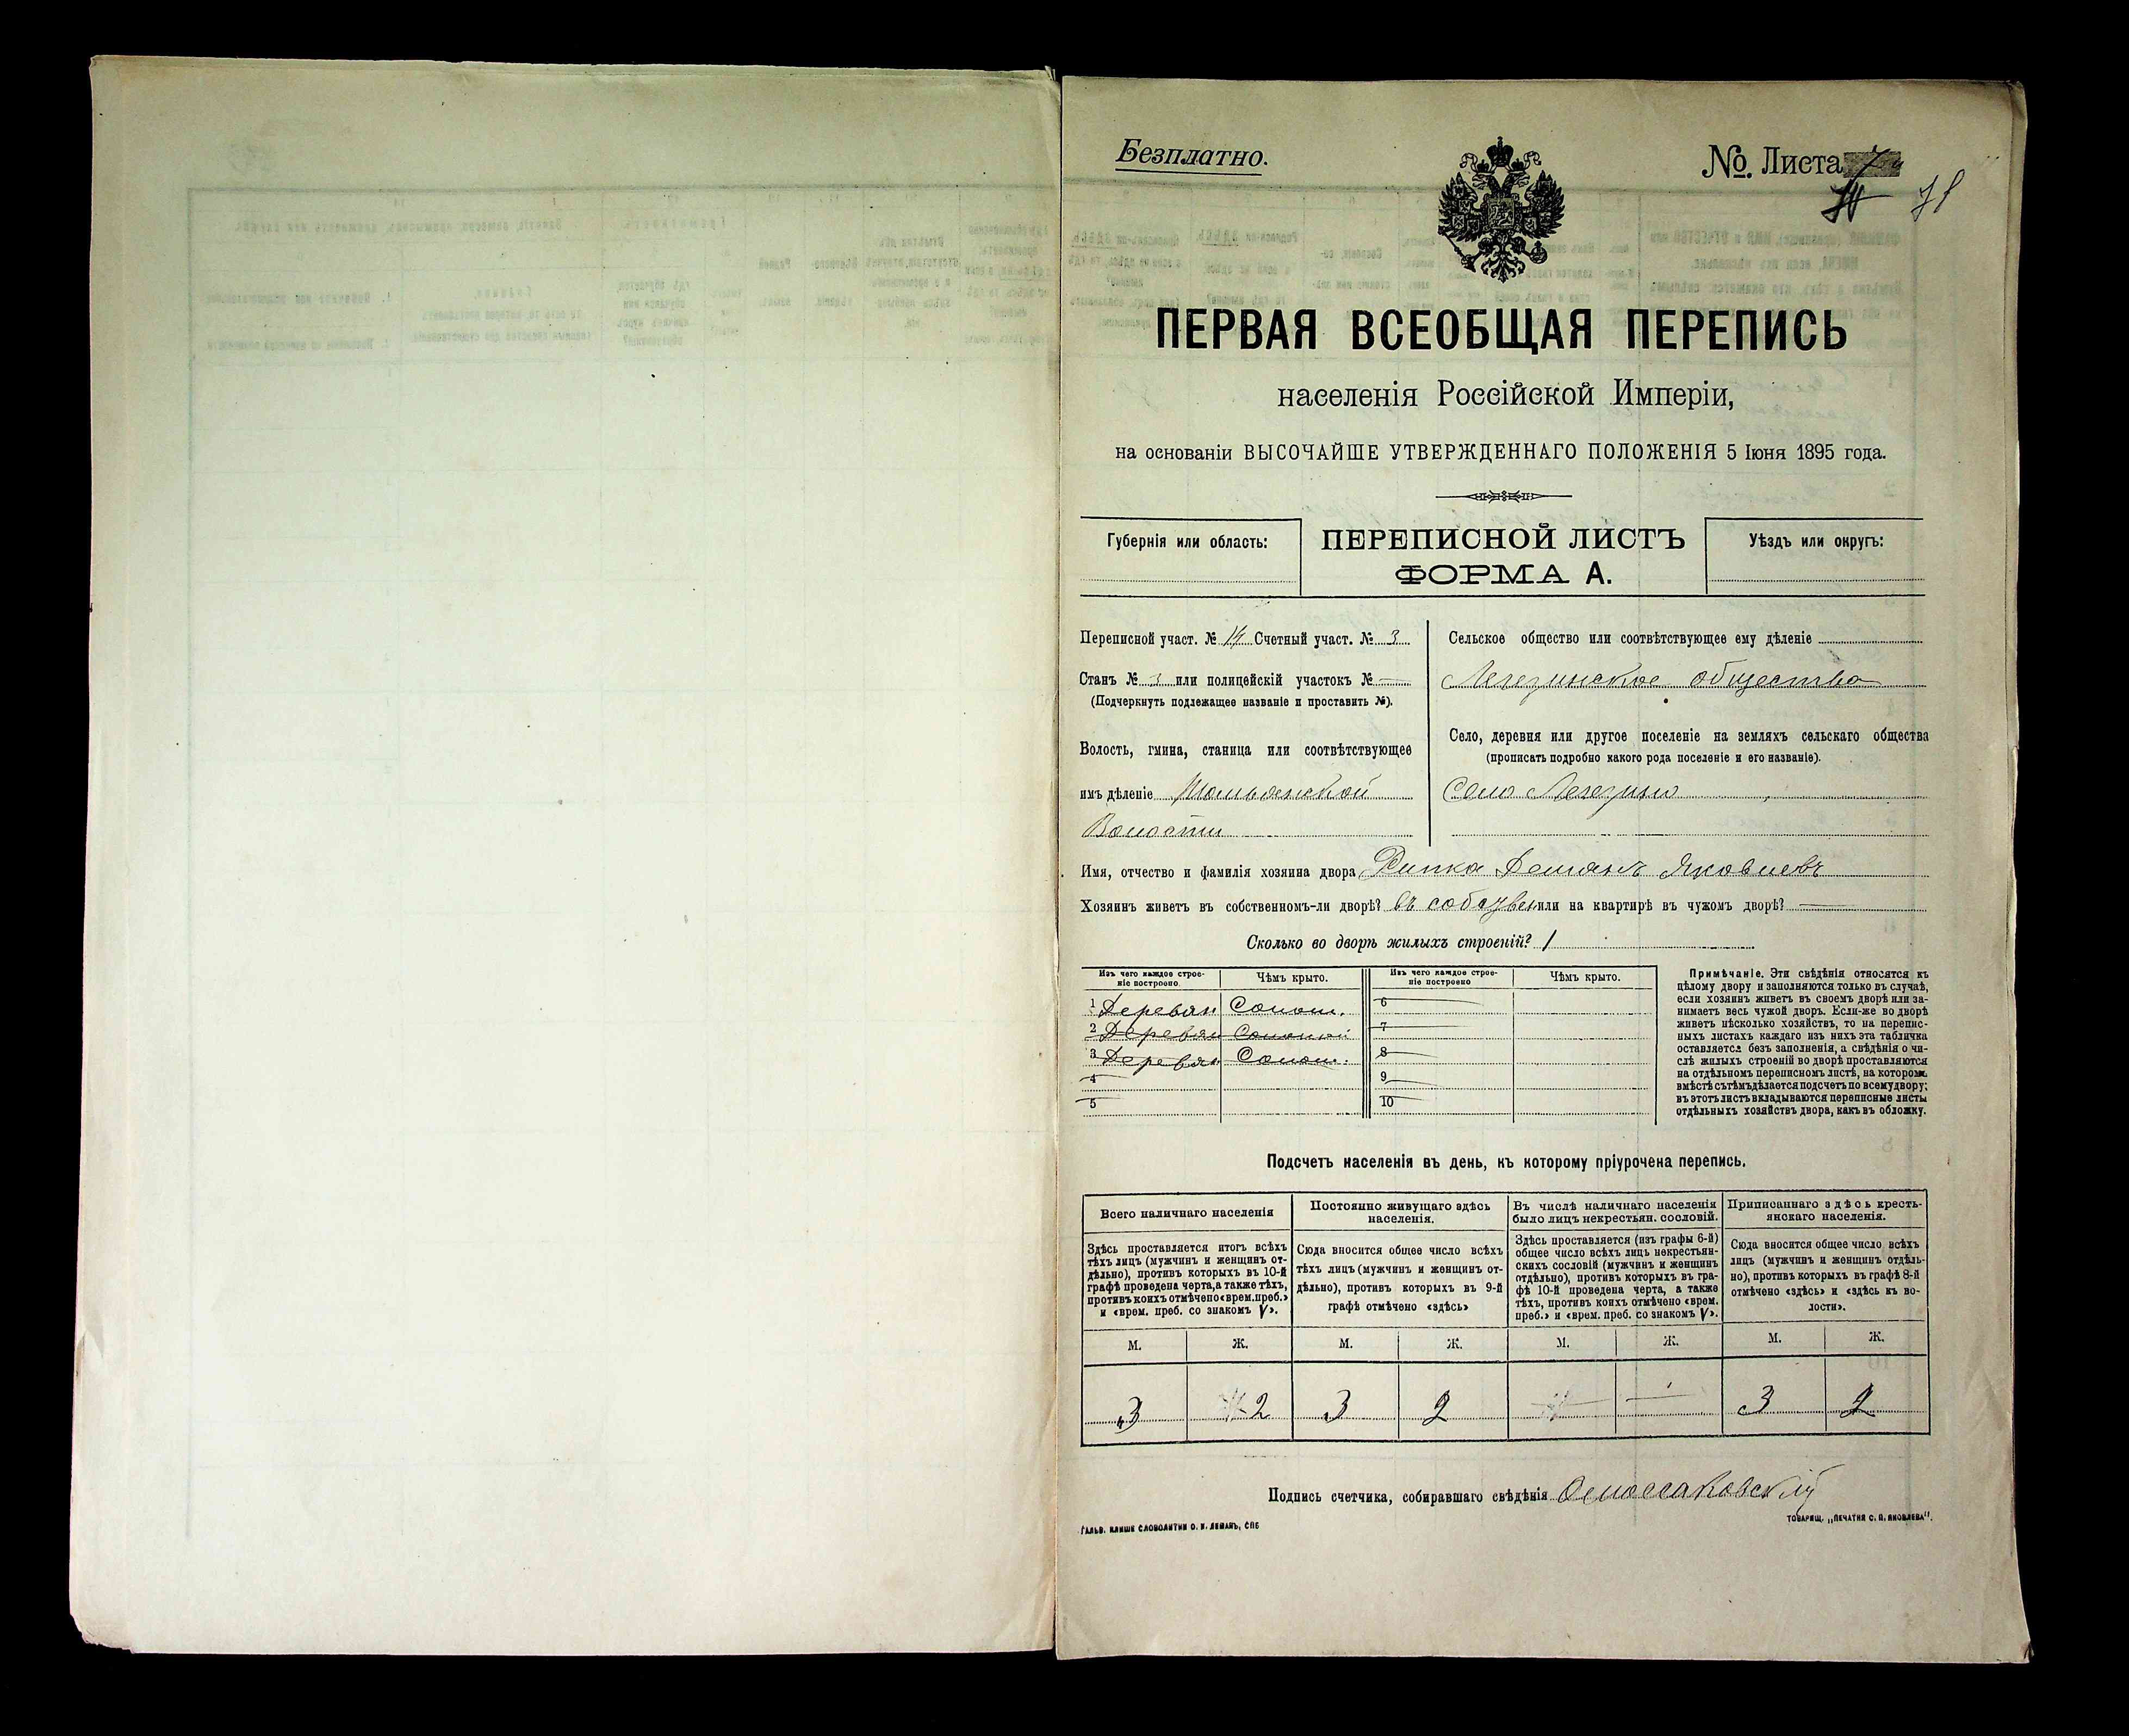 Безплатно.
№. Листа
78
ПЕРВАЯ ВСЕОБЩАЯ ПЕРЕПИСЬ
населенія Россійской Имперіи,
на основаніи ВЫСОЧАЙШЕ УТВЕРЖДЕННАГО ПОЛОЖЕНІЯ 5 Іюня 1895 года.
Губернія или область:
ПЕРЕПИСНОЙ ЛИСТЪ
ФОРМА А.
Уѣздъ или округъ:
Переписной участ. № 14 Счетный участ. № 3
Станъ № 3 или полицейскій участокъ № —
(Подчеркнуть подлежащее названіе и проставить №).
Волость, гмина, станица или соотвѣтствующее
имъ дѣленіе
Волости
Сельское общество или соотвѣтствующее ему дѣленіе
Легезинское общество
Село, деревня или другое поселеніе на земляхъ сельскаго общества
(прописать подробно какого рода поселеніе и его названіе).
Село Легезино
Имя, отчество и фамилія хозяина двора Рипка Демянъ Яковлевъ
Хозяинъ живетъ въ собственномъ-ли дворѣ? въ собствен или на квартирѣ въ чужомъ дворѣ? —
Сколько во дворѣ жилыхъ строеній? 1
Изъ чего каждое строе-
ніе построено.
Чѣмъ крыто.
Изъ чего каждое строе-
ніе построено
Чѣмъ крыто.
1 Деревян Солом. 6
2 Деревян Соломой 7
3 Деревян Солом. 8
4 9
5 10
Примѣчаніе. Эти свѣдѣнія относятся къ
цѣлому двору и заполняются только въ случаѣ,
если хозяинъ живетъ въ своемъ дворѣ или за-
нимаетъ весь чужой дворъ. Если-же во дворѣ
живетъ нѣсколько хозяйствъ, то на перепис-
ныхъ листахъ каждаго изъ нихъ эта табличка
оставляется безъ заполненія, а свѣдѣнія о чи-
слѣ жилыхъ строеній во дворѣ проставляются
на отдѣльномъ переписномъ листѣ, на которомъ
вмѣстѣ съ тѣмъ дѣлается подсчетъ по всему двору;
въ этотъ листъ вкладываются переписные листы
отдѣльныхъ хозяйствъ двора, какъ въ обложку.
Подсчетъ населенія въ день, къ которому пріурочена перепись.
Всего наличнаго населенія
Постоянно живущаго здѣсь
населенія.
Въ числѣ наличнаго населенія
было лицъ некрестьян. сословій.
Приписаннаго здѣсь кресть-
янскаго населенія.
Здѣсь проставляется итогъ всѣхъ
тѣхъ лицъ (мужчинъ и женщинъ от-
дѣльно), противъ которыхъ въ 10-й
графѣ проведена черта, а также тѣхъ,
противъ коихъ отмѣчено «врем. преб.»
и «врем. преб. со знакомъ V».
Сюда вносится общее число всѣхъ
тѣхъ лицъ (мужчинъ и женщинъ от-
дѣльно), противъ которыхъ въ 9-й
графѣ отмѣчено «здѣсь»
Здѣсь проставляется (изъ графы 6-й)
общее число всѣхъ лицъ некрестьян-
скихъ сословій (мужчинъ и женщинъ
отдѣльно), противъ которыхъ въ гра-
фѣ 10-й проведена черта, а также
тѣхъ, противъ коихъ отмѣчено «врем.
преб.» и «врем. преб. со знакомъ V».
Сюда вносится общее число всѣхъ
лицъ (мужчинъ и женщинъ отдѣль-
но), противъ которыхъ въ графѣ 8-й
отмѣчено «здѣсь» и «здѣсь къ во-
лости».
М. Ж. М. Ж. М. Ж. М. Ж.
3 2 3 2 — — 3 2
Подпись счетчика, собиравшаго свѣдѣнія
ГАЛЬВ. КЛИШЕ СЛОВОЛИТНИ О. И. ЛЕМАНЪ, СПБ
ТОВАРИЩ. „ПЕЧАТНЯ С. П. ЯКОВЛЕВА".